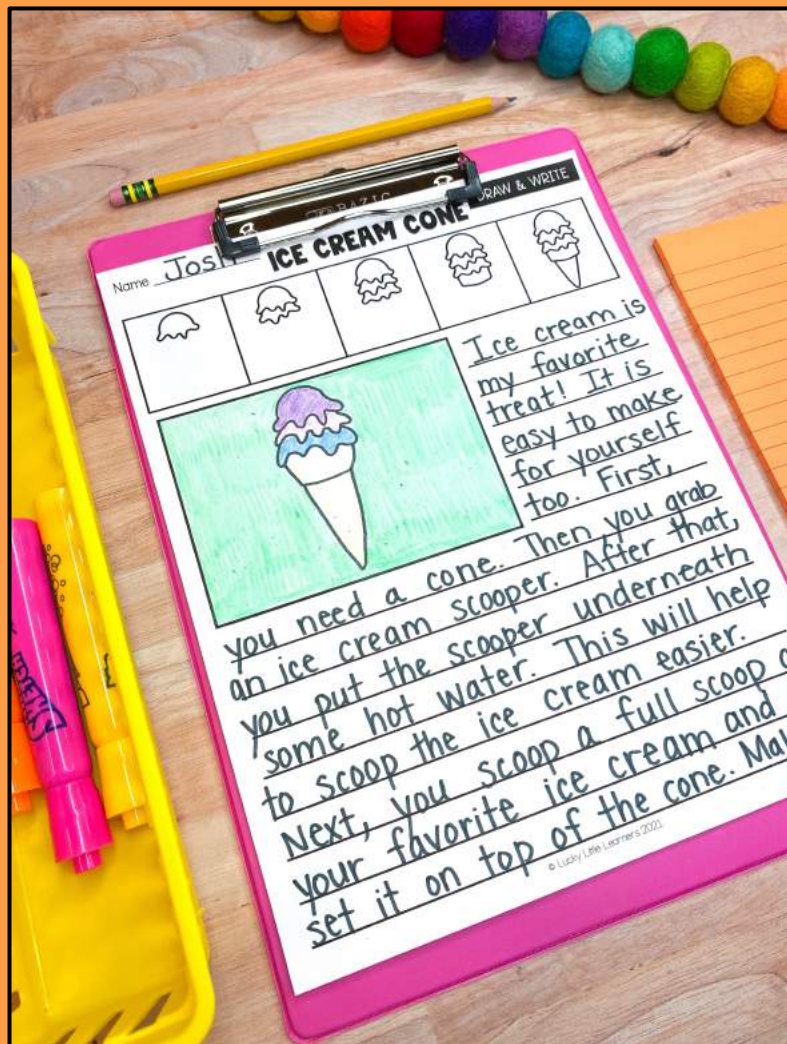 BAZIC
DRAW & WRITE
ICE CREAM CONE
Name Josh
Ice cream is
my favorite
treat! It is
easy to make
for yourself
too. First,
you need a cone. Then you grab
an ice cream scooper. After that,
you put the scooper underneath
some hot water. This will help
to scoop the ice cream easier.
Next, you scoop a full scoop
your favorite ice cream and
set it on top of the cone.
© Lucky Little Learners 2021